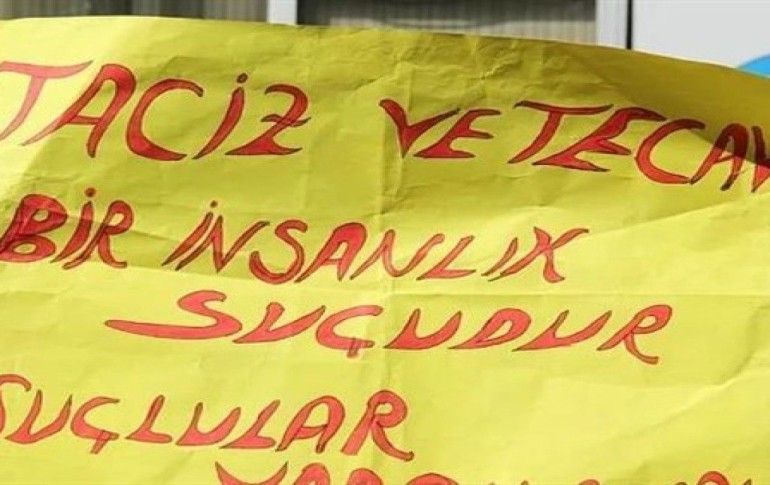 TACİZ VE TECAV
BİR İNSANLIK
SUÇUDUR
SUÇLULAR